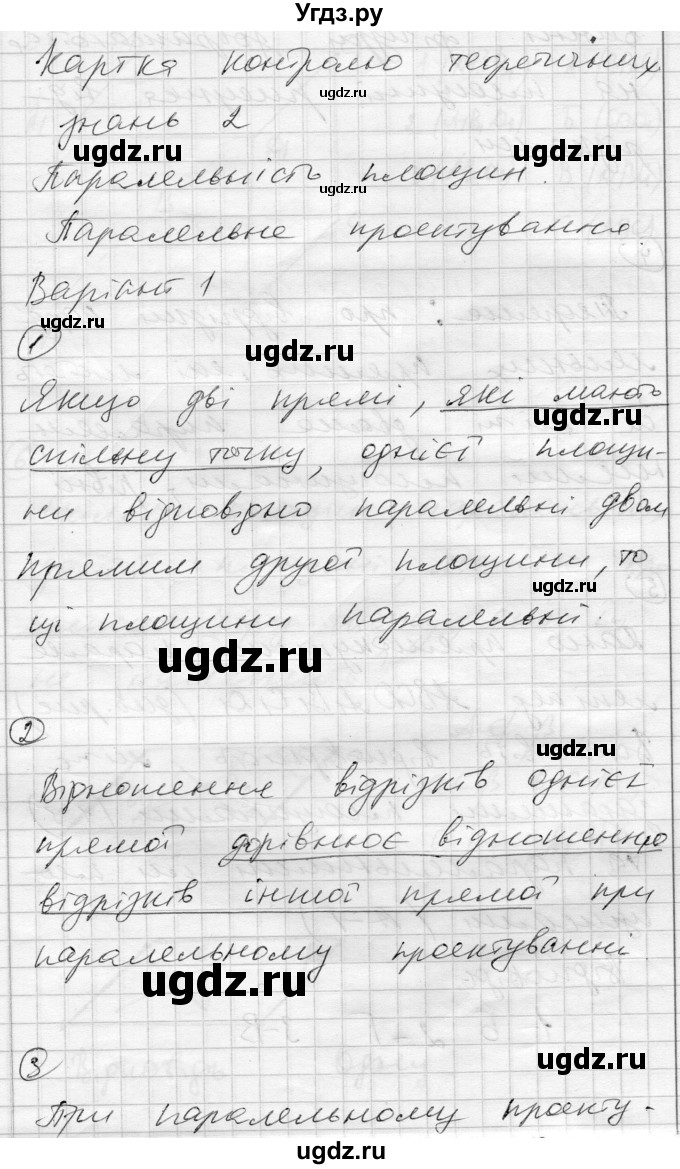 Угдз.ру
Картка контролю теоретичних
ugdz.ru
знань 2
ugdz.ru
Паралельність площин.
ugdz.ru
Паралельне проектування
Варіант 1
ugdz.ru
1
ugdz.ru
Якщо дві прямі, які мають
ugdz.ru
спільну точку, однієї площи-
ни відповідно паралельні двом
прямим другої площини, то
ugdz.ru
ці площини паралельні.
ugdz.ru
2
ugdz.ru
Відношення відрізків однієї
прямої дорівнює відношенню
відрізків іншої прямої при
паралельному проектуванні
ugdz.ru
ugdz.ru
3
При паралельному проекту-
Угдз.ру